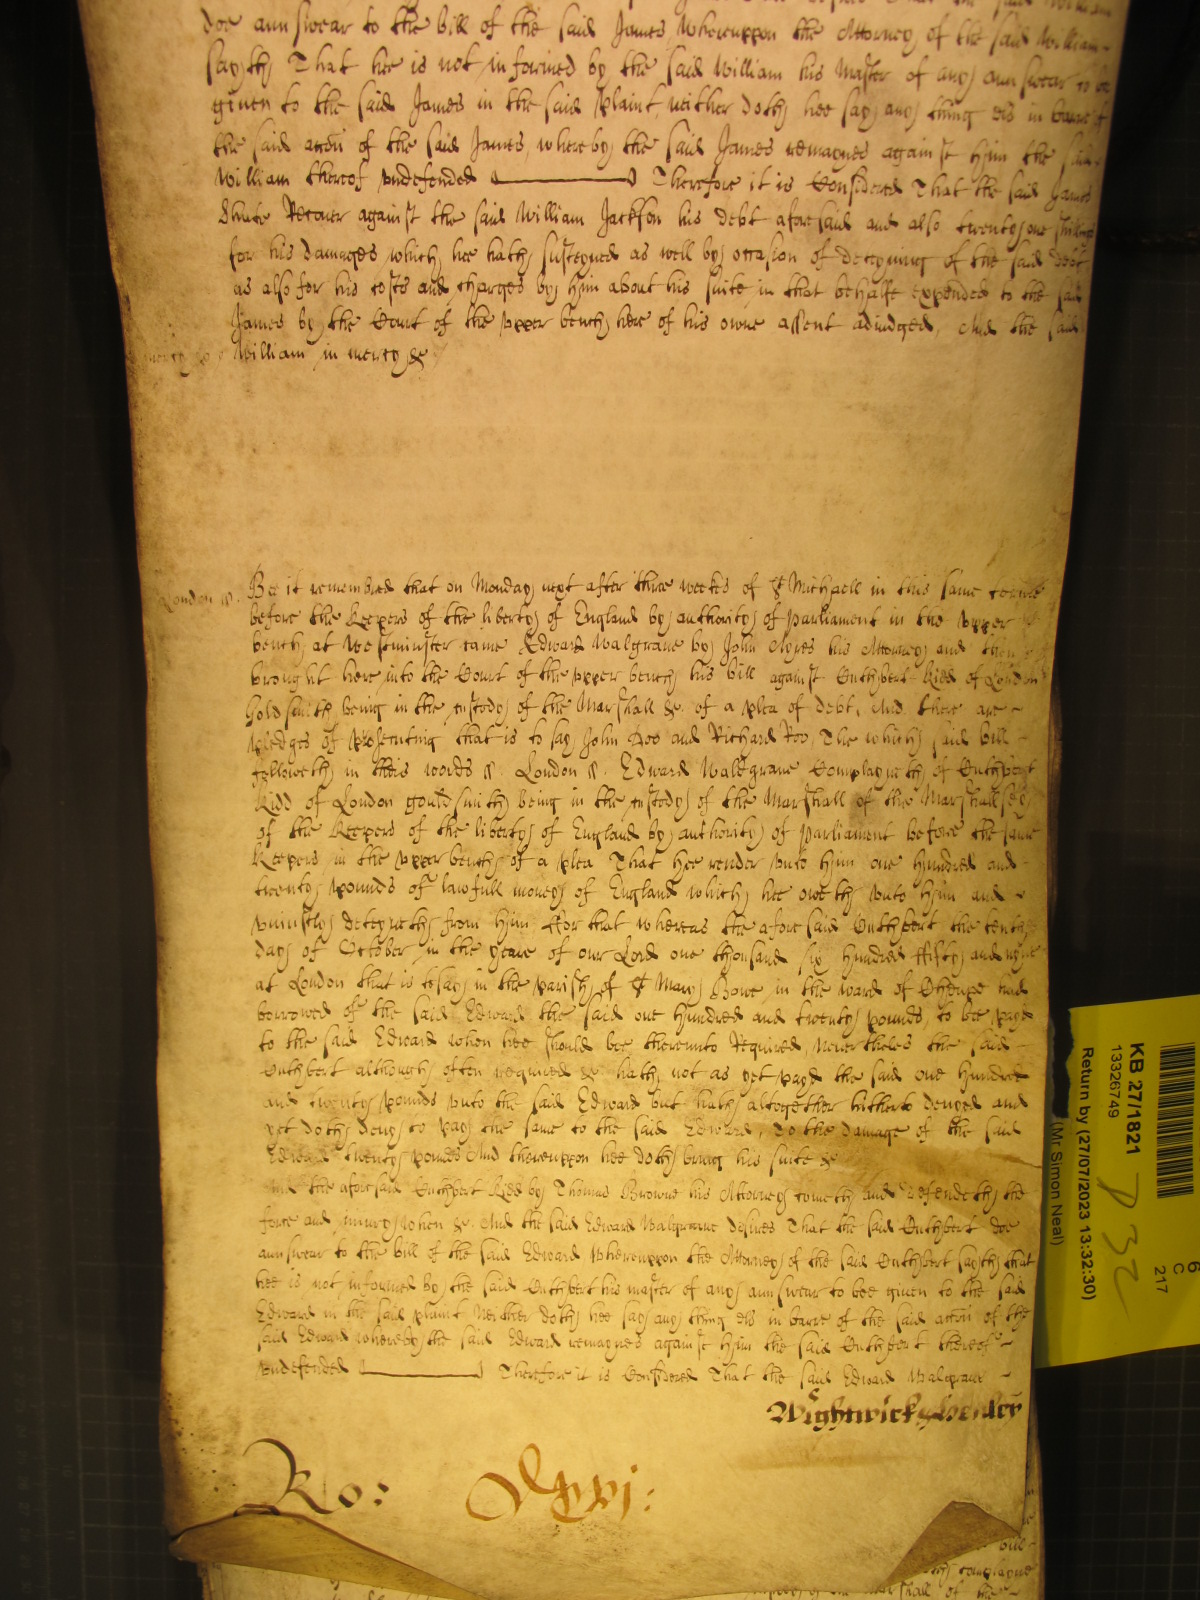 doe aunswear to the bill of the said James Whereuppon the Attorney of the said William
sayth That hee is not informed by the said William his Master of any aunswear to be
given to the said James in the said plaint, neither doth hee say any thing els in barre of
the said accon of the said James, whereby the said James remaynes against him the said
William thereof undefended Therefore it is Considered That the said James
Recover against the said William Jackson his debt aforesaid and also twenty one shillings
for his damages which hee hath susteyned as well by occasion of deteyning of the said debt
as also for his costs and charges by him about his suite in that behalfe expended to the said
James by the Court of the upper bench here of his owne assent adiudged, And the said
William in mercy &c
London ss. Bee it remembred that on Monday next after three weekes of St Michaell in this same terme
before the Keepers of the liberty of England by authority of Parliament in the upper
bench at Westminster came Edward Walgrave by John Ayres his Attorney and then
brought here into the Court of the upper bench his bill against Cuthbert Kidd of London
Goldsmith being in the custody of the Marshall &c. of a plea of debt, And there are
pledges of prosecuting that is to say John Doe and Richard Roo, The which said bill
followeth in theis words ss. London ss. Edward Walgrave Complayneth of Cuthbert
Kidd of London gouldsmith being in the custody of the Marshall of the Marshallsey
of the Keepers of the liberty of England by authority of Parliament before the same
Keepers in the upper bench of a plea That hee render unto him one hundred and
twenty pounds of lawfull money of England which hee oweth unto him and
uniustly deteyneth from him ffor that whereas the aforesaid Cuthbert the tenth
day of October in the yeare of our Lord one thousand six hundred ffifty and nyne
at London that is to say in the parish of St Mary Bowe in the ward of Cheape had
borrowed of the said Edward the said one hundred and twenty pounds, to bee payd
to the said Edward when hee should bee thereunto Required, Nevertheles the said
Cuthbert although often required &c hath not as yet payd the said one hundred
and twenty pounds unto the said Edward but hath altogether hitherto denyed and
yet doth deny to pay the same to the said Edward, To the damage of the said
Edward twenty pounds And thereuppon hee doth bring his suite &c
And the aforesaid Cuthbert Kidd by Thomas Browne his Attorney cometh and defendeth the
force and iniury when &c. And the said Edward Walgrave desires That the said Cuthbert doe
aunswear to the bill of the said Edward Whereuppon the Attorney of the said Cuthbert sayth that
hee is not informed by the said Cuthbert his master of any aunswear to bee given to the said
Edward in the said plaint Neither doth hee say any thing els in barre of the said accon of the
said Edward whereby the said Edward remaynes against him the said Cuthbert thereof
undefended Therefore it is Considered That the said Edward Walgrave
Wightwick & Henley
Ro:
KB 27/1821
13326749
Return by (27/07/2023 13:32:30)
(Mr Simon Neal)
6
C
217